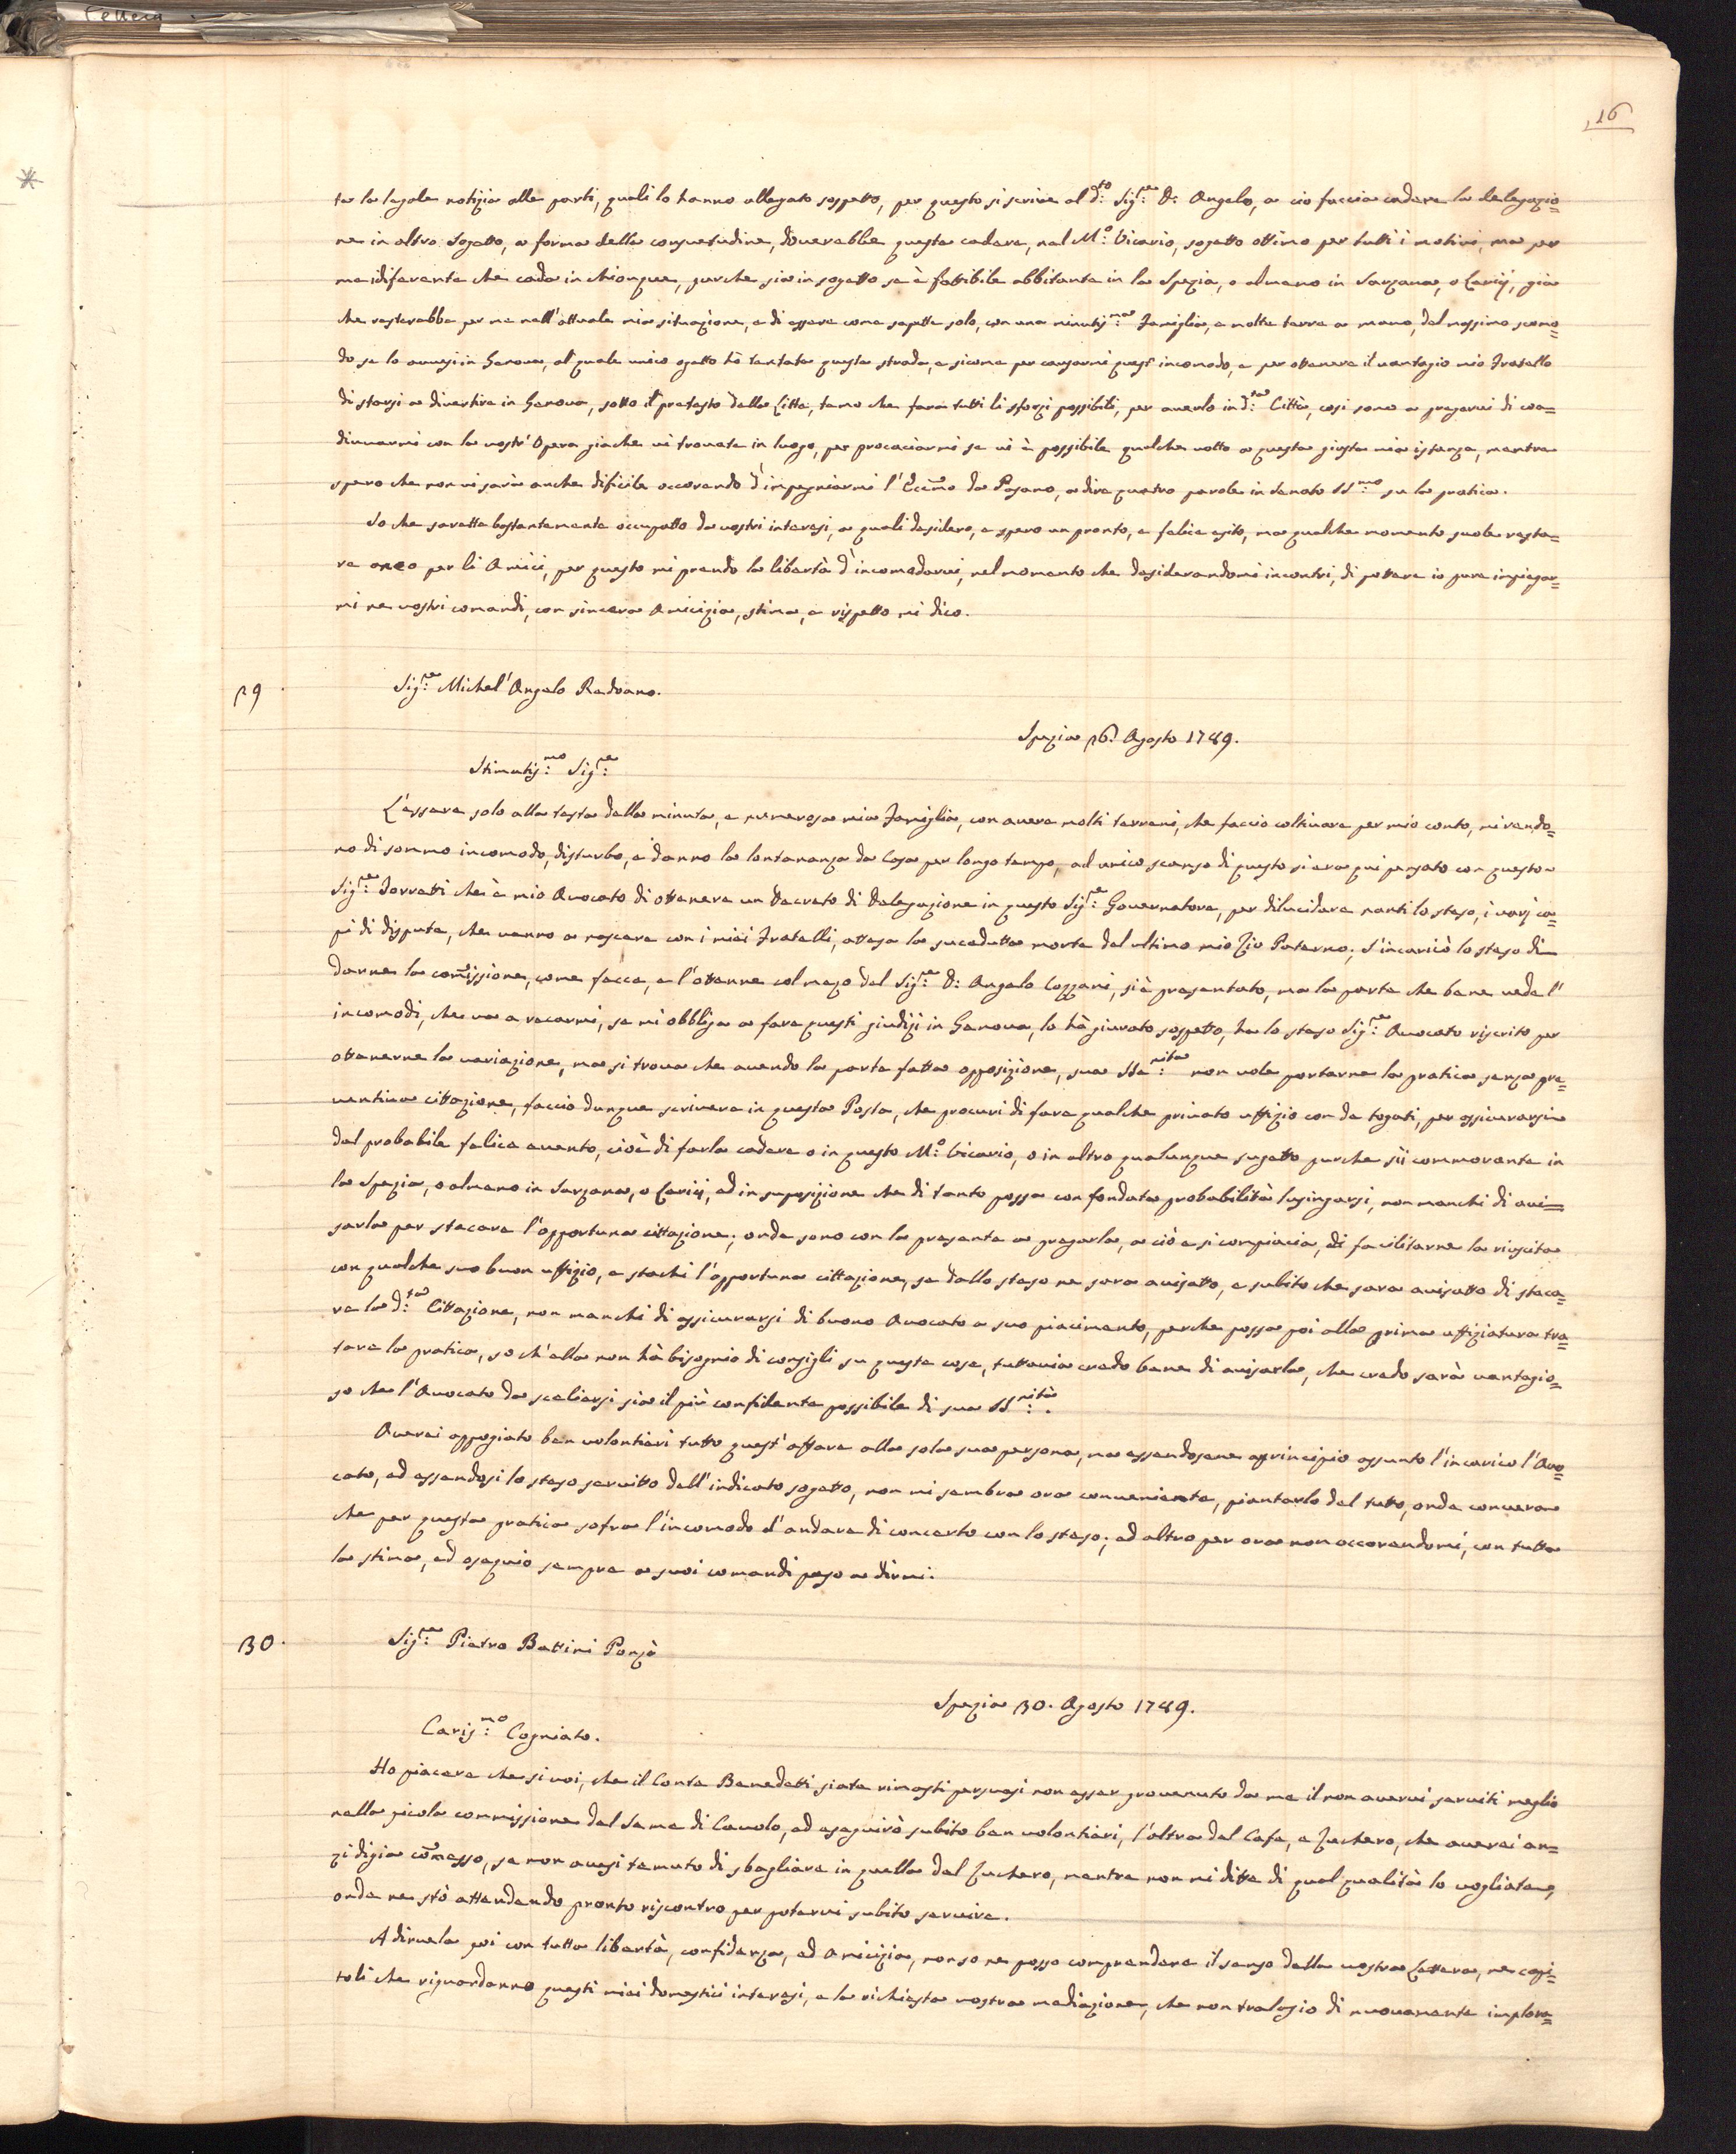 Lettera
16
ta la legale notizia alle parti, quali lo hanno allegato sospetto, per questo si scrive al d:to Sig:re D: Angelo, a ciò faccia cadere la delegazio=
ne in altro Sogetto, a forma della consuetudine, doverebbe questa cadere, nel M:o Vicario, sogetto ottimo per tutti i motivi, ma per
me idiferente che cada in chionque, purche sia in sogetto se è fattibile abbitante in la Spezia, o almeno in Sarzana, o Lerici, gia
che resterebbe per me nell'attuale mia situazione, e di essere come sapette solo, con una minutis:ma Famiglia, e molte terre a mano, del massimo scomo=
do se lo avvesi in Genova, al quale unico ogetto hò tentata questa strada, e sicome per causarmi quest' incomodo, e per ottenere il vantagio mio Fratello
di starsi a divertire in Genova, sotto il pretesto della Litte, temo che farà tutti li sforzi possibili, per averlo in d:ta Città, così sono a pregarvi di coa=
diuvarmi con la vostr' Opera giache vi trovate in luogo, per procaciarmi se vi è possibile qualche votto a questa giusta mia istanza, mentre
spero che non vi sarà anche dificile occorendo d'impegniarmi l'Eccmo da Passano, a dire quatro parole in Senato SS:mo su la pratica.
So che sarette bastantemente occupatto da vostri interesi, a quali desidero, e spero un pronto, e felice esito, ma qualche momento suole resta=
re anco per li Amici, per questo mi prendo la libertà d'incomodarvi, nel momento che desiderandomi incontri, di pottere io pure impiegar=
mi ne vostri comandi, con sincera Amicizia, stima, e rispetto mi dico.
29.
Sig:re Michel'Angelo Redoano.
Spezia 26. Agosto 1789.
Stimatis:mo Sig:re
L'essere solo alla testa della minuta, e numerosa mia Famiglia, con avere molti terreni, che faccio coltivare per mio conto, mi rendo=
no di sommo incomodo, disturbo, e danno la lontananza da Casa per longo tempo, ad unico scanso di questo si era qui pensato con questo
Sig:re Torretti che è mio Avocato di ottenere un Decreto di Delegazione in questo Sig:re Governatore, per dilucidare nanti lo steso, i varj ca=
pi di dispute, che vanno a nascere con i miei Fratelli, attesa la sucedutta morte del ultimo mio Zio Paterno; S'incaricò lo steso di
darne la comissione, come fecce, e l'ottenne col mezo del Sig:re D: Angelo Cozzani, si è presentato, ma la parte che bene vede l'
incomodi, che va a recarmi, se mi obbliga a fare questi giudizj in Genova, lo hà giurato sospetto, ha lo steso Sig:re Avocato riscrito per
ottenerne la variazione, ma si trova che avendo la parte fatta opposizione, sua SSe:nità non vole portarne la pratica senza pre=
ventiva cittazione, faccio dunque scrivere in questa Posta, che procuri di fare qualche privato uffizio con da togati, per assicurarsi
del probabile felice evento, cioè di farla cadere o in questo M:o Vicario, o in altro qualunque sugetto purche sii commorante in
la Spezia, o almeno in Sarzana, o Lerici, ed in suposizione che di tanto possa con fondata probabilità lusingarsi, non manchi di avi=
sarla per stacare l'opportuna cittazione; onde sono con la presente a pregarla, a ciò e si compiacia, di facilitarne la riuscita
con qualche suo buon uffizio, e stachi l'opportuna cittazione, se dallo steso ne sara avisatto, e subito che sara avisatto di staca=
re la d:ta Cittazione, non manchi di assicurarsi di buono Avocato a suo piacimento, perche possa poi alla prima uffiziatura tra=
tare la pratica, so ch'ella non hà bisognio di consigli su queste cose, tuttavia credo bene di avisarla, che credo sarà vantagio=
so che l'Avocato da scaliersi sia il più confidente possibile di sua SS:nità.
Averei appogiato ben volontieri tutto quest'affare alla sola sua persona, ma essendosene apprincipio assunto l'incarico l'Avo=
cato, ed essendosi lo steso servitto dell'indicato sogetto, non mi sembra ora conveniente, piantarlo del tutto, onde convera
che per questa pratica sofra l'incomodo d'andare di concerto con lo steso; ed altro per ora non occorendomi, con tutta
la stima, ed osequio sempre a suoi comandi paso a dirmi.
30.
Sig:re Pietro Battini Ponzò
Spezia 30. Agosto 1789.
Caris:mo Cogniato.
Ho piacere che si voi, che il Conte Benedetti siate rimasti persuasi non esser provenuto da me il non avervi serviti meglio
nella picola commissione del Seme di Cavolo, ed eseguirò subito ben volontieri, l'altra del Cafe, e Zuchero, che averei an=
zi digia comesso, se non avesi temuto di sbagliare in quella del Zuchero, mentre non mi ditte di qual qualità lo vogliate,
onde ne stò attendendo pronto riscontro per potervi subito servire.
A dirvela poi con tutta libertà, confidenza, ed Amicizia, non so ne posso comprendere il senso della vostra Lettera, ne capi=
toli che riguardanno questi miei domestici interesi, e la richiesta vostra mediazione, che non tralasio di nuovamente implora=